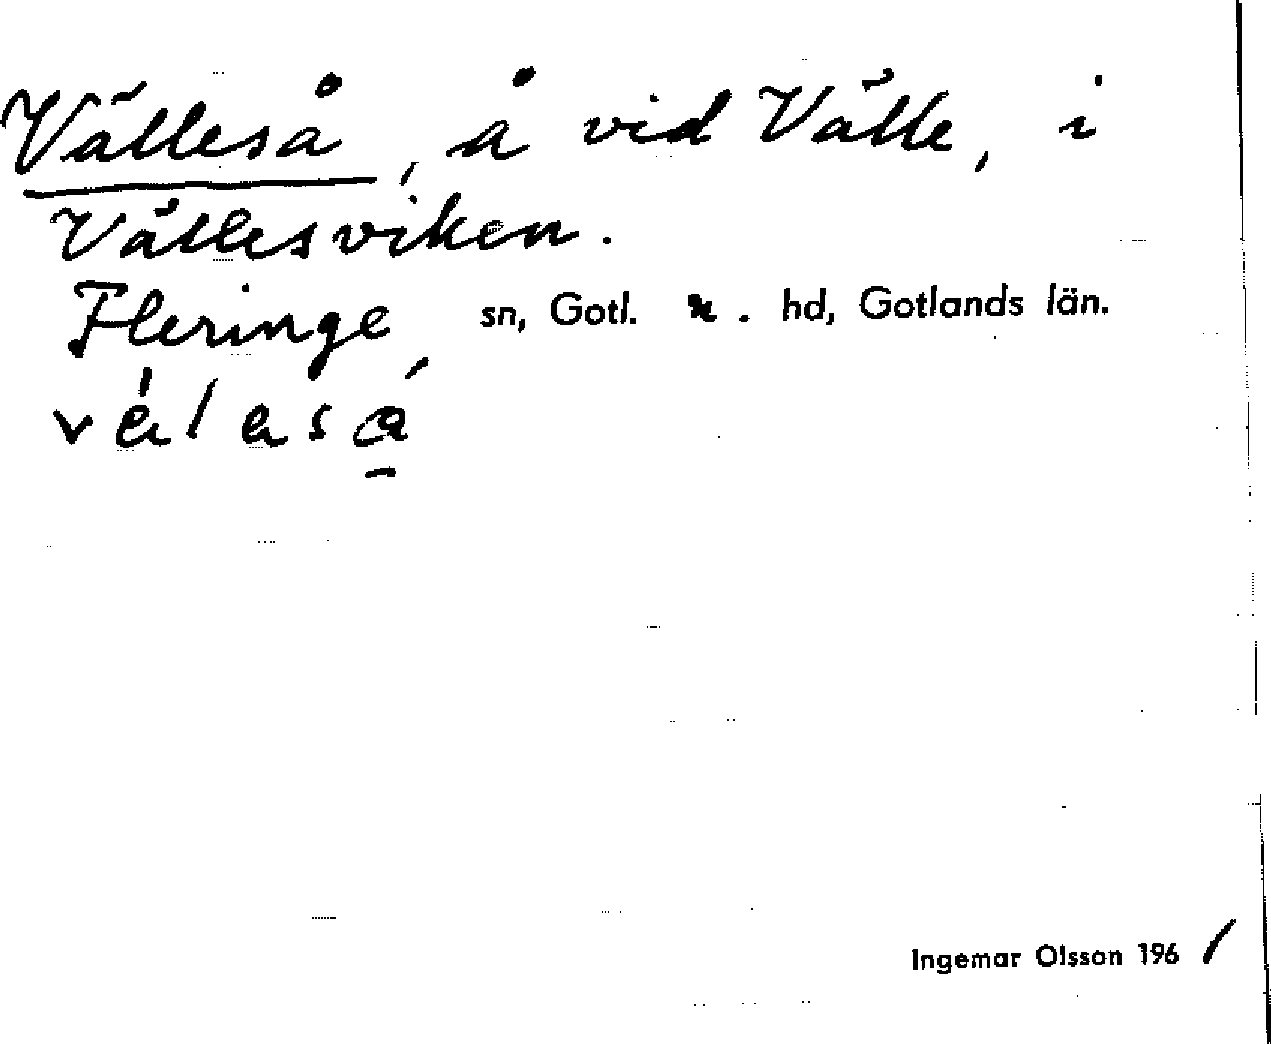 Välleså, å vid Välle, i
Vällesviken.
Fleringe sn, Gotl. n. hd, Gotlands län.
Ingemar Olsson 1961